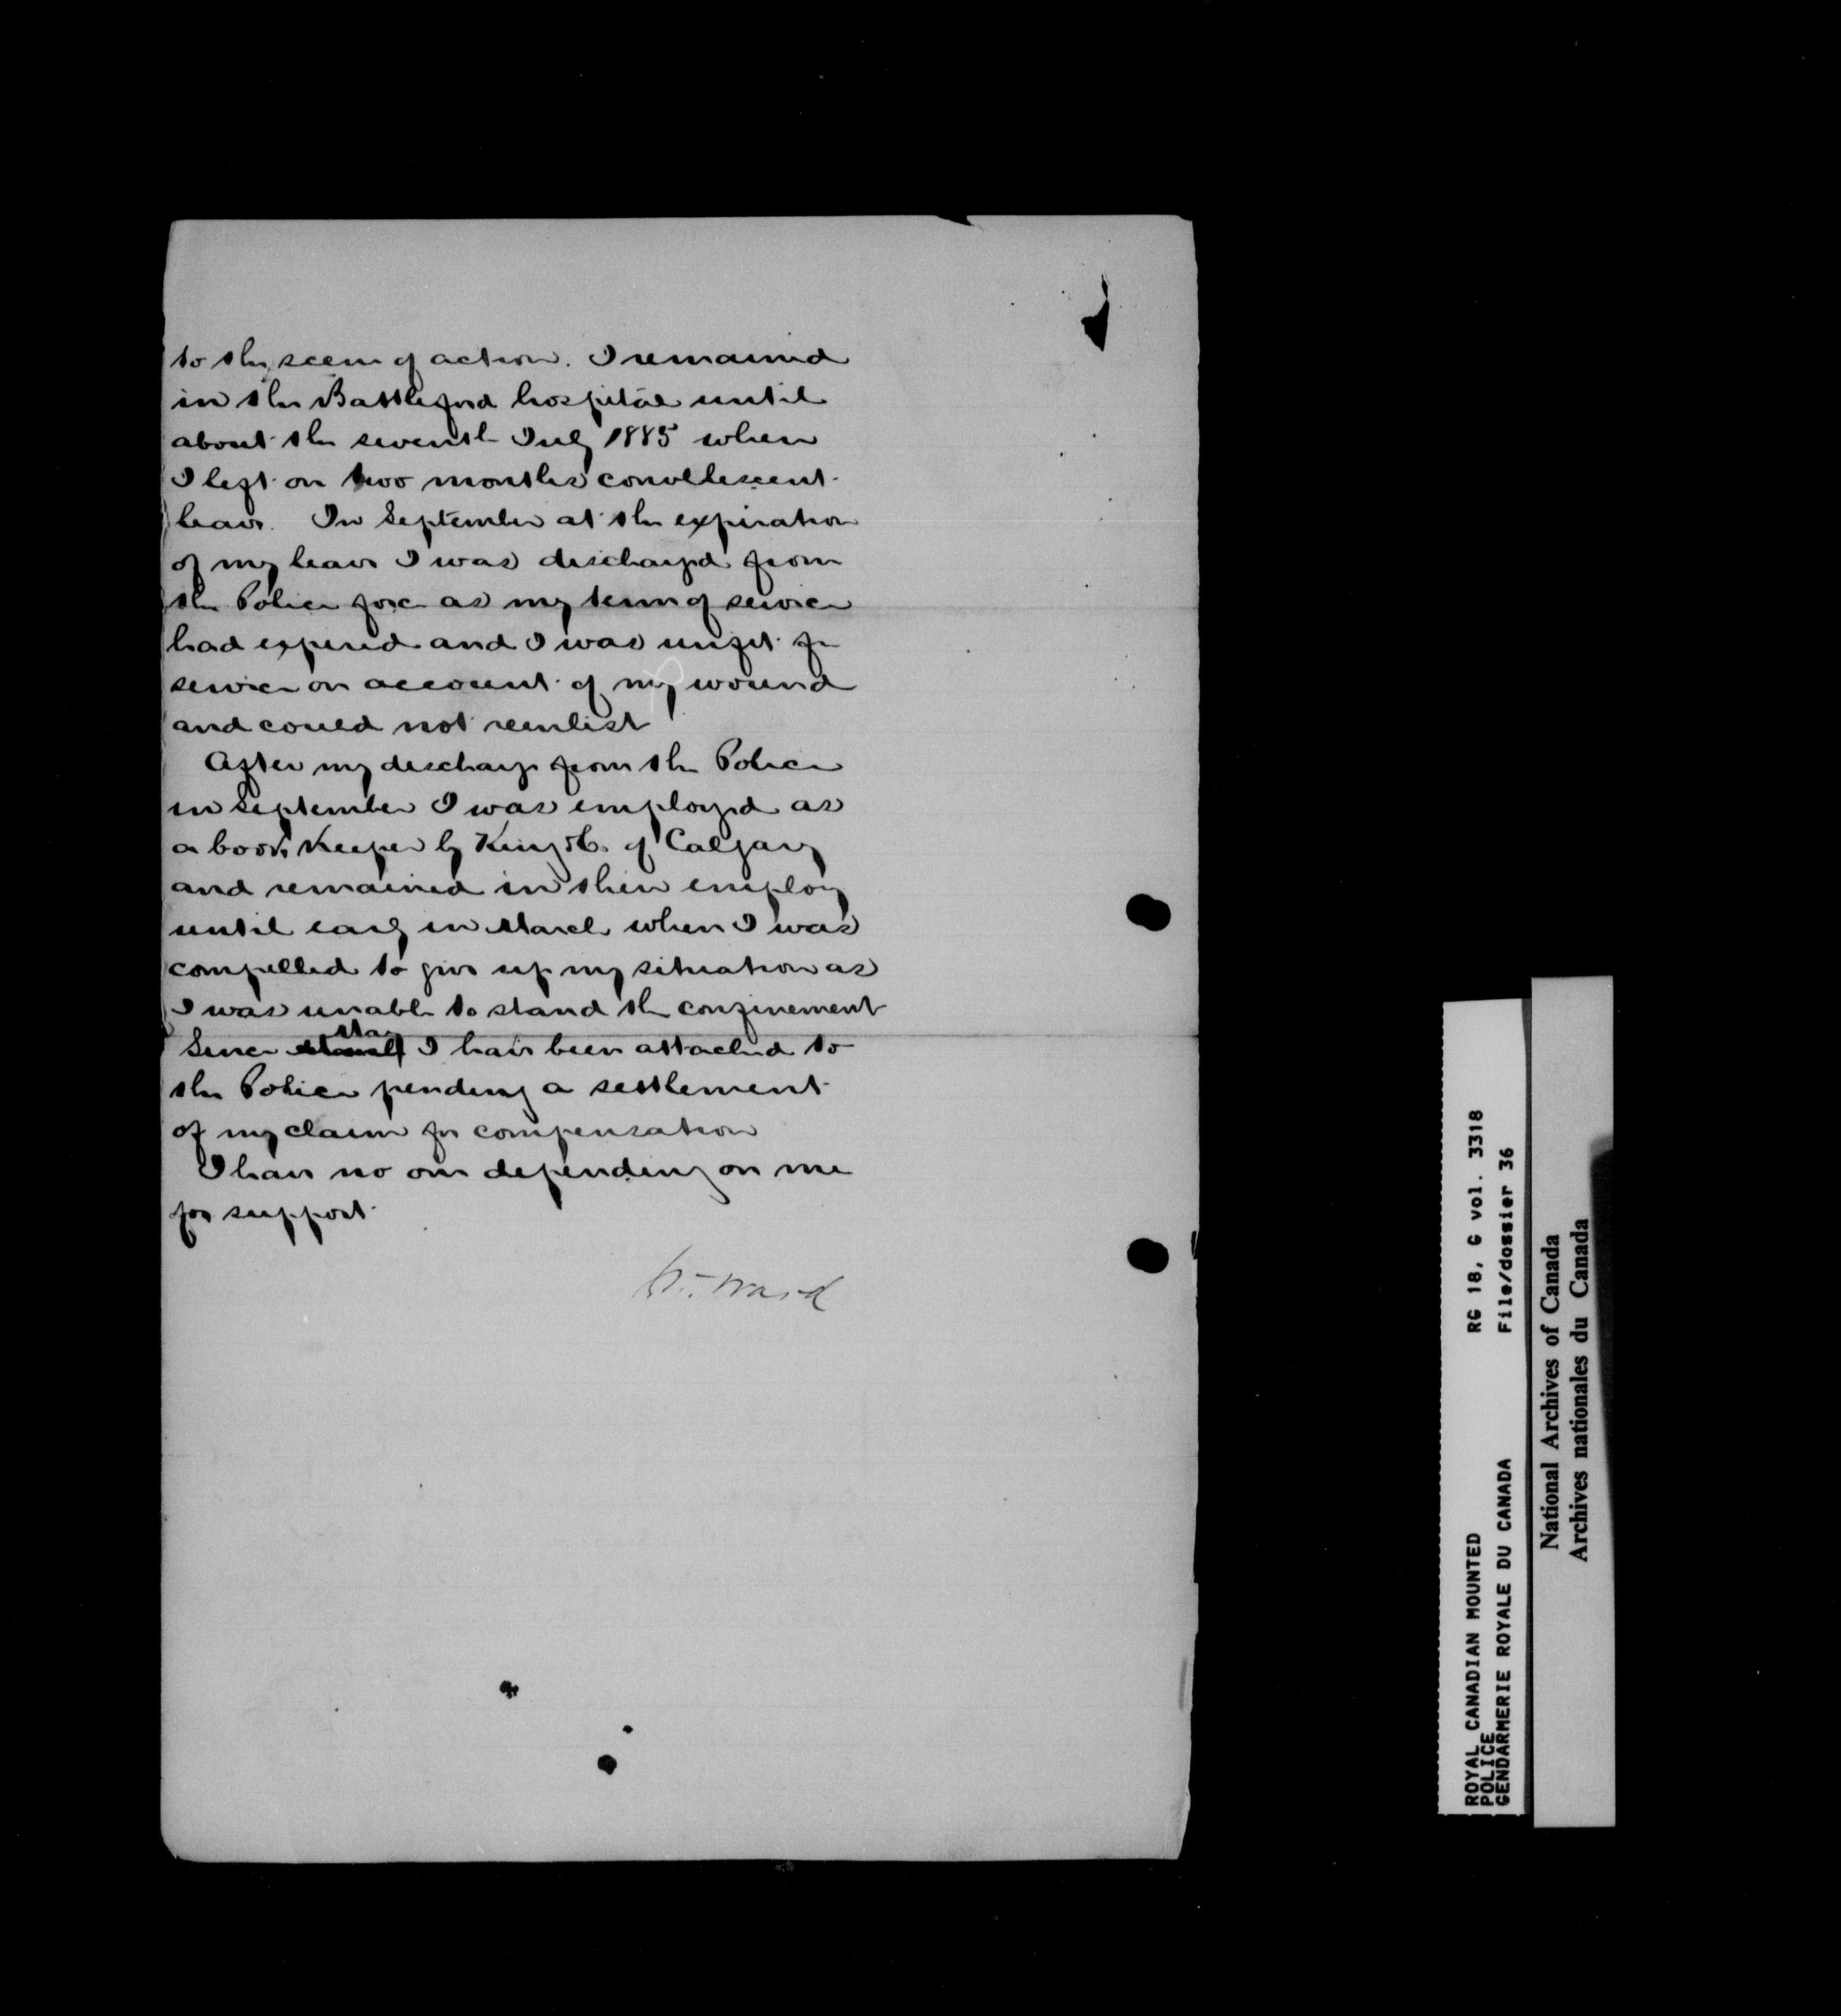 to the scene of action. I remained
in the Battleford hospital until
about the seventh July 1885 when
I left on two months convellescent
leave. In September at the expiration
of my leave I was discharged from
the Police force as my term of service
had expired and I was unfit for
service on account of my wound
and could not reenlist
After my discharge from the Police
in September I was employed as
a book keeper by King & Co. of Calgary
and remained in their employ
until early in March when I was
compelled to give up my situation as
I was unable to stand the confinement
Since May I have been attached to
the Police pending a settlement
of my claim for compensation
I have no one depending on me
for support.
W. Ward
ROYAL CANADIAN MOUNTED
POLICE
GENDARMERIE ROYALE DU CANADA
RG 18, G vol. 3318
File/dossier 36
National Archives of Canada
Archives nationales du Canada